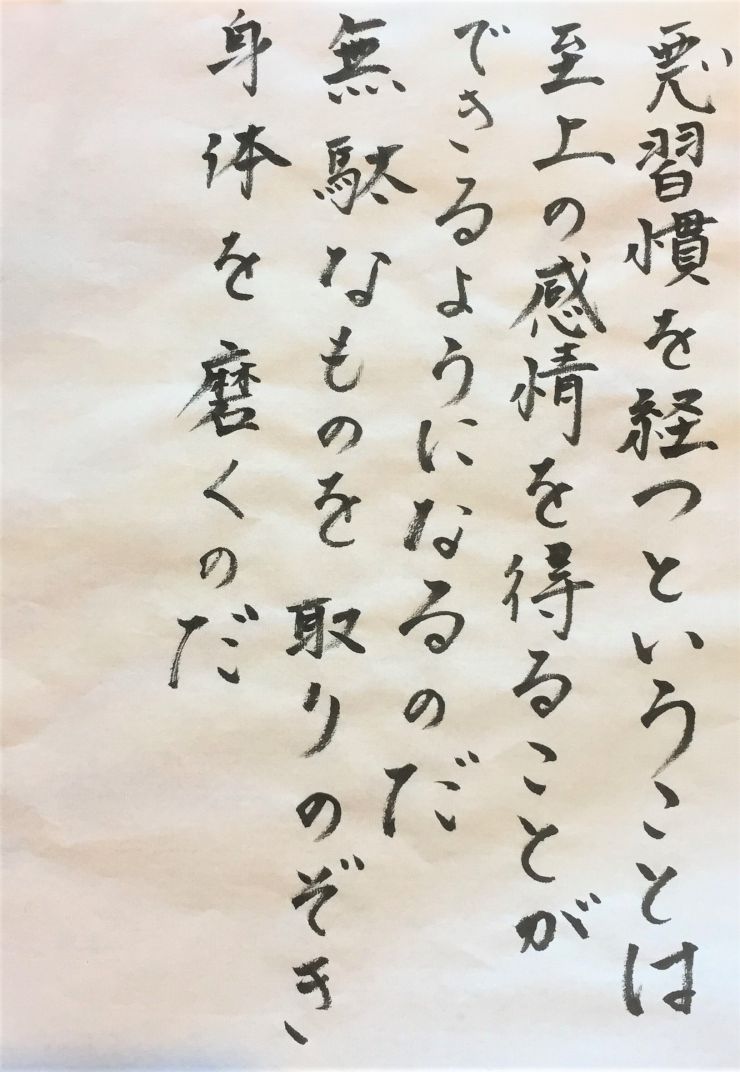 悪習慣を経つということは
至上の感情を得ることが
できるようになるのだ
無駄なものを取りのぞき
身体を磨くのだ